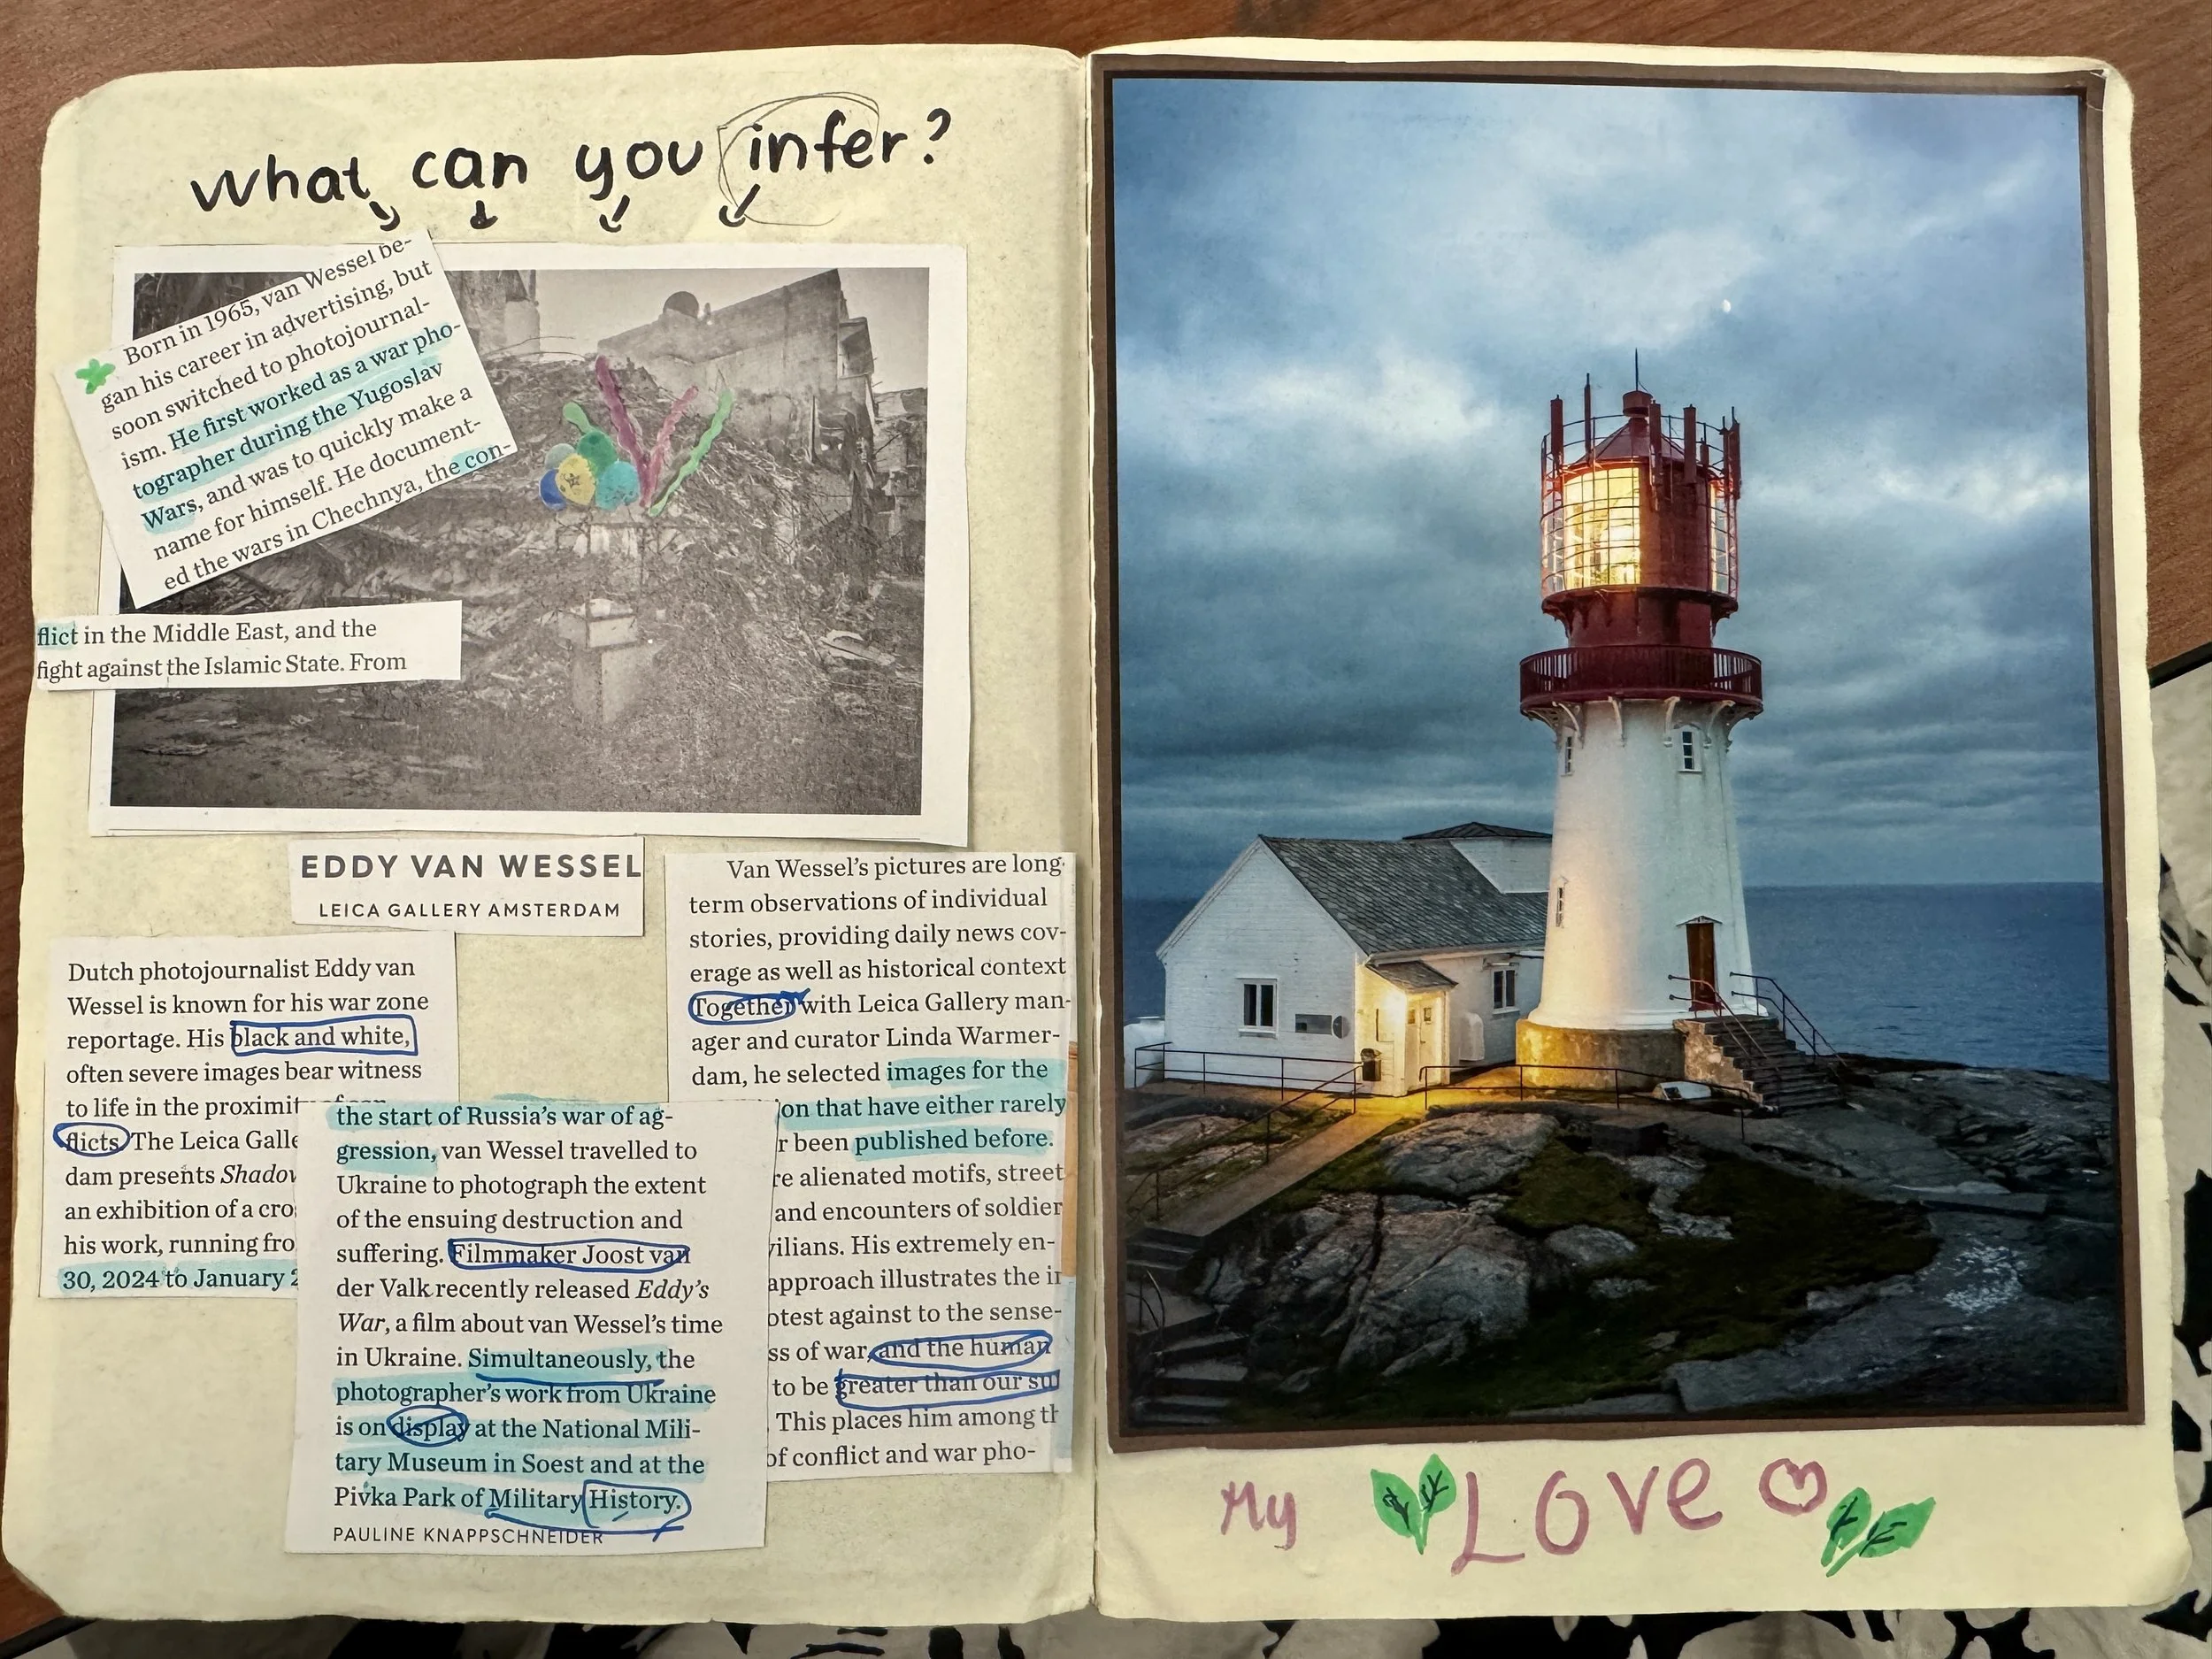 What can you infer?
Born in 1965, van Wessel be-
gan his career in advertising, but
soon switched to photojournal-
ism. He first worked as a war pho-
tographer during the Yugoslav
Wars, and was to quickly make a
name for himself. He document-
ed the wars in Chechnya, the con-
flict in the Middle East, and the
fight against the Islamic State. From
EDDY VAN WESSEL
LEICA GALLERY AMSTERDAM
Dutch photojournalist Eddy van
Wessel is known for his war zone
reportage. His black and white,
often severe images bear witness
to life in the proximit
flicts. The Leica Galle
dam presents Shadow
an exhibition of a cro
his work, running fro
30, 2024 to January 2
the start of Russia's war of ag-
gression, van Wessel travelled to
Ukraine to photograph the extent
of the ensuing destruction and
suffering. Filmmaker Joost van
der Valk recently released Eddy's
War, a film about van Wessel's time
in Ukraine. Simultaneously, the
photographer's work from Ukraine
is on display at the National Mili-
tary Museum in Soest and at the
Pivka Park of Military History.
PAULINE KNAPPSCHNEIDER
Van Wessel's pictures are long-
term observations of individual
stories, providing daily news cov-
erage as well as historical context
Together with Leica Gallery man-
ager and curator Linda Warmer-
dam, he selected images for the
ion that have either rarely
r been published before.
re alienated motifs, street
and encounters of soldier
ilians. His extremely en-
approach illustrates the
otest against to the sense-
ss of war, and the human
to be greater than our
This places him among
of conflict and war pho-
My Love